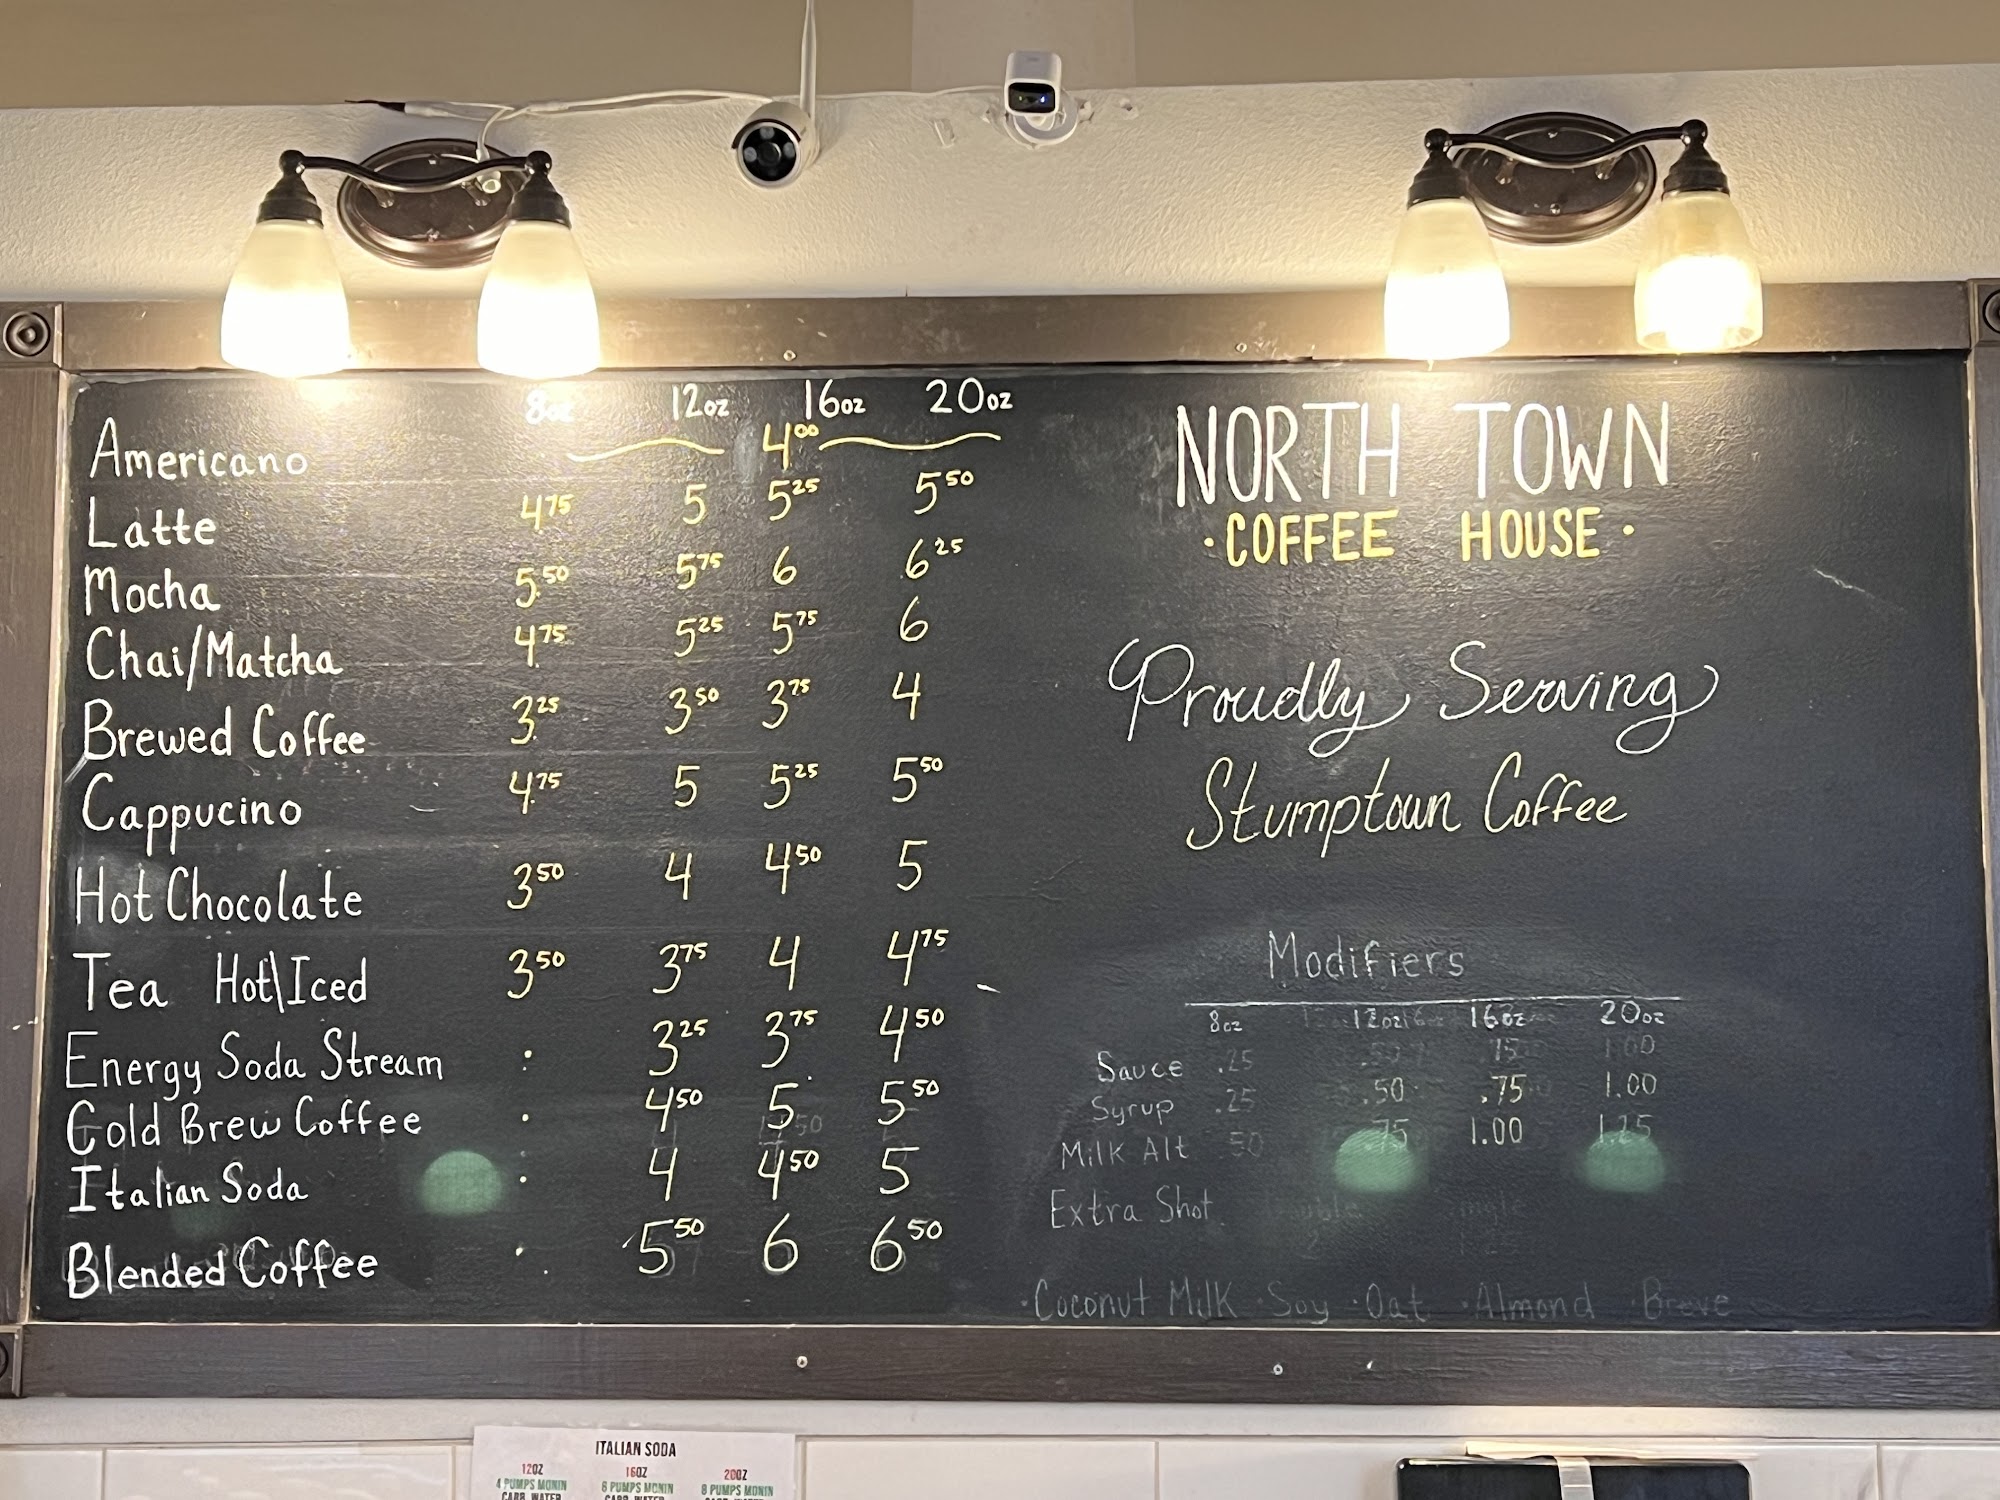 8oz 12oz 16oz 20oz
Americano 4.00
Latte 4.75 5 5.25 5.50
Mocha 5.50 5.75 6 6.25
Chai/Matcha 4.75 5.25 5.75 6
Brewed Coffee 3.25 3.50 3.75 4
Cappucino 4.75 5 5.25 5.50
Hot Chocolate 3.50 4 4.50 5
Tea Hot\Iced 3.50 3.75 4 4.75
Energy Soda Stream 3.25 3.75 4.50
Cold Brew Coffee 4.50 5 5.50
Italian Soda 4 4.50 5
Blended Coffee 5.50 6 6.50
NORTH TOWN
·COFFEE HOUSE·
Proudly Serving
Stumptown Coffee
Modifiers
8oz 12oz 16oz 20oz
Sauce .25 .50 .75 1.00
Syrup .25 .50 .75 1.00
Milk Alt .50 .75 1.00 1.25
Extra Shot
·Coconut Milk ·Soy ·Oat ·Almond ·Breve
ITALIAN SODA
12OZ 16OZ 20OZ
4 PUMPS MONIN 6 PUMPS MONIN 8 PUMPS MONIN
CARB WATER